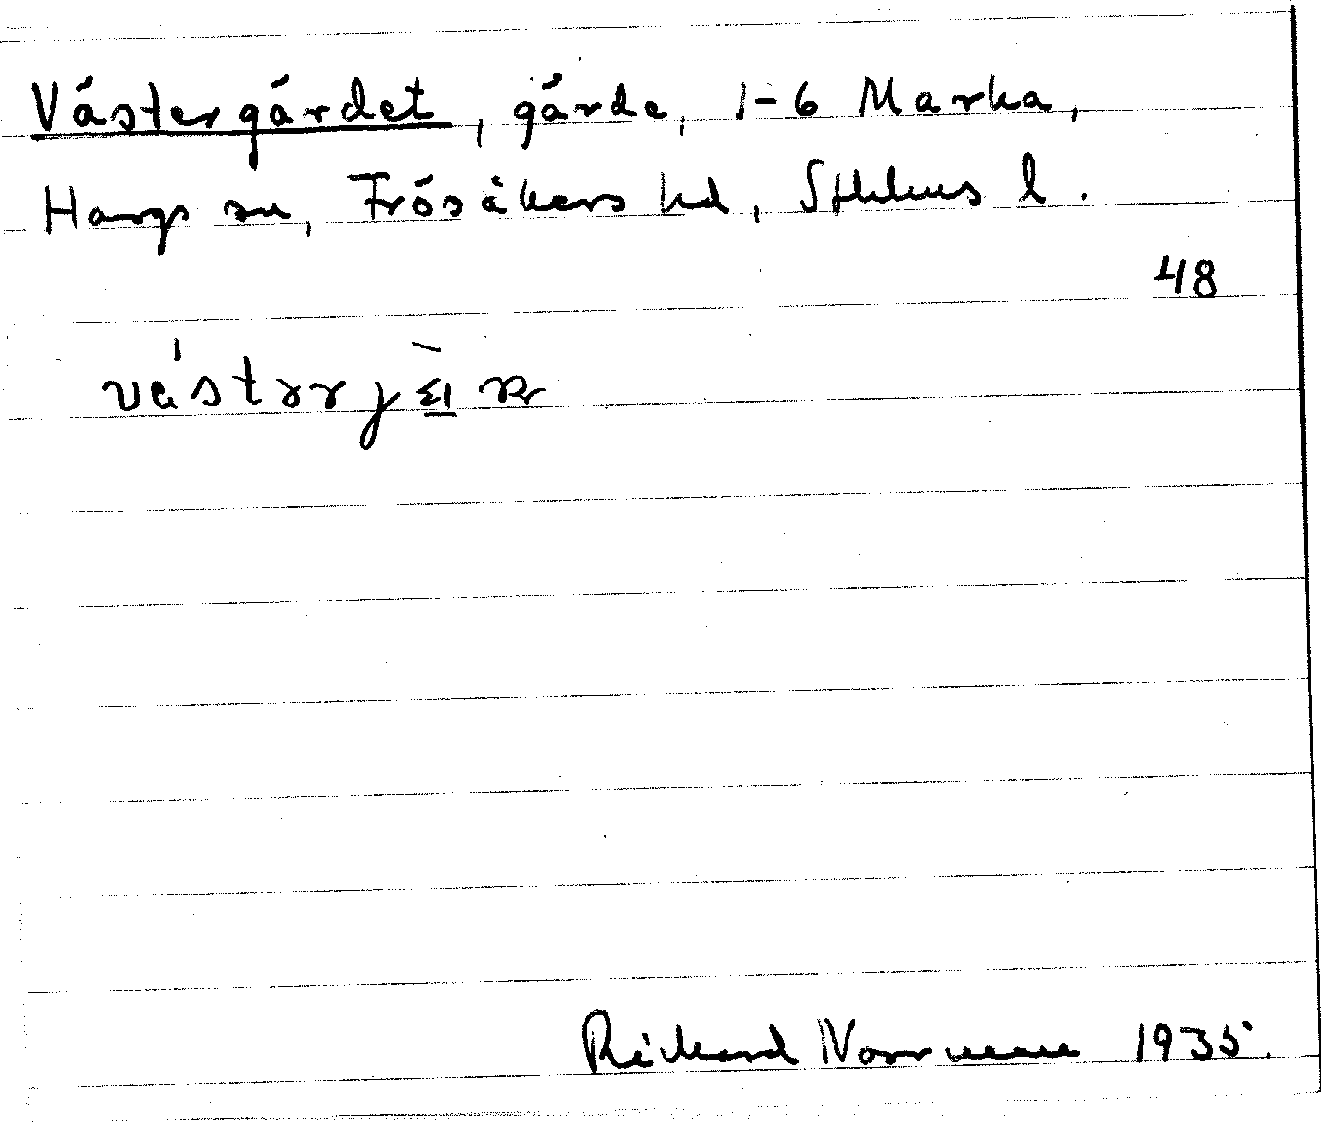 Västergärdet, gärde, 1-6 Marka,
Hargs sn, Frösåkers hd, Sthlms l.
48
Rickard Norrman 1935.